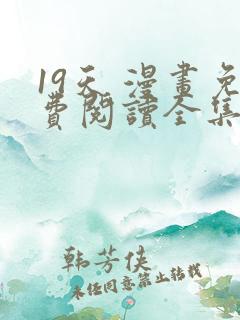 19天 漫畫免
費閱讀全集
韩芳侠
未经同意禁止转载